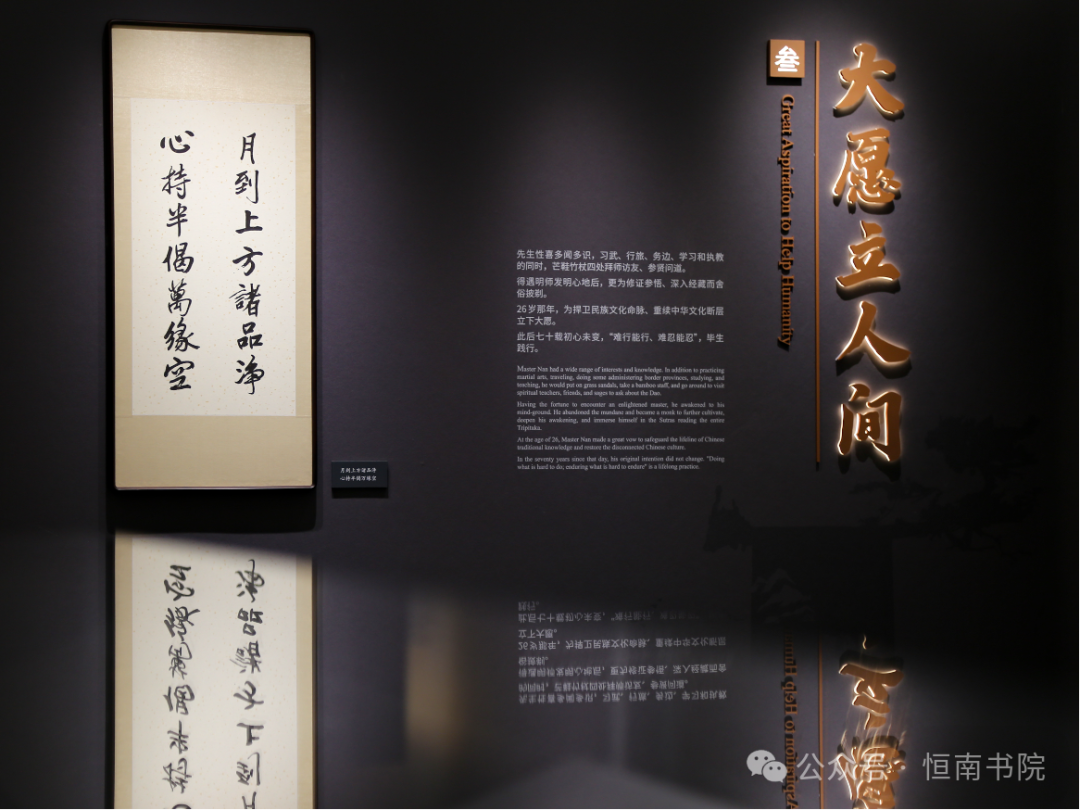 叁
大愿立人间
Great Aspiration to Help Humanity
月到上方諸品淨
心持半偈萬緣空
先生性喜多闻多识，习武、行旅、务边、学习和执教
的同时，芒鞋竹杖四处拜师访友、参贤问道。
得遇明师发明心地后，更为修证参悟、深入经藏而舍
俗披剃。
26岁那年，为捍卫民族文化命脉、重续中华文化断层
立下大愿。
此后七十载初心未变，“难行能行、难忍能忍”，毕生
践行。
Master Nan had a wide range of interests and knowledge. In addition to practicing
martial arts, traveling, doing some administering border provinces, studying, and
teaching, he would put on grass sandals, take a bamboo staff, and go around to visit
spiritual teachers, friends, and sages to ask about the Dao.
Having the fortune to encounter an enlightened master, he awakened to his
mind-ground. He abandoned the mundane and became a monk to further cultivate,
deepen his awakening, and immerse himself in the Sutras reading the entire
Tripitaka.
At the age of 26, Master Nan made a great vow to safeguard the lifeline of Chinese
traditional knowledge and restore the disconnected Chinese culture.
In the seventy years since that day, his original intention did not change. "Doing
what is hard to do; enduring what is hard to endure" is a lifelong practice.
月到上方诸品净
心持半偈万缘空
公众号 · 恒南书院